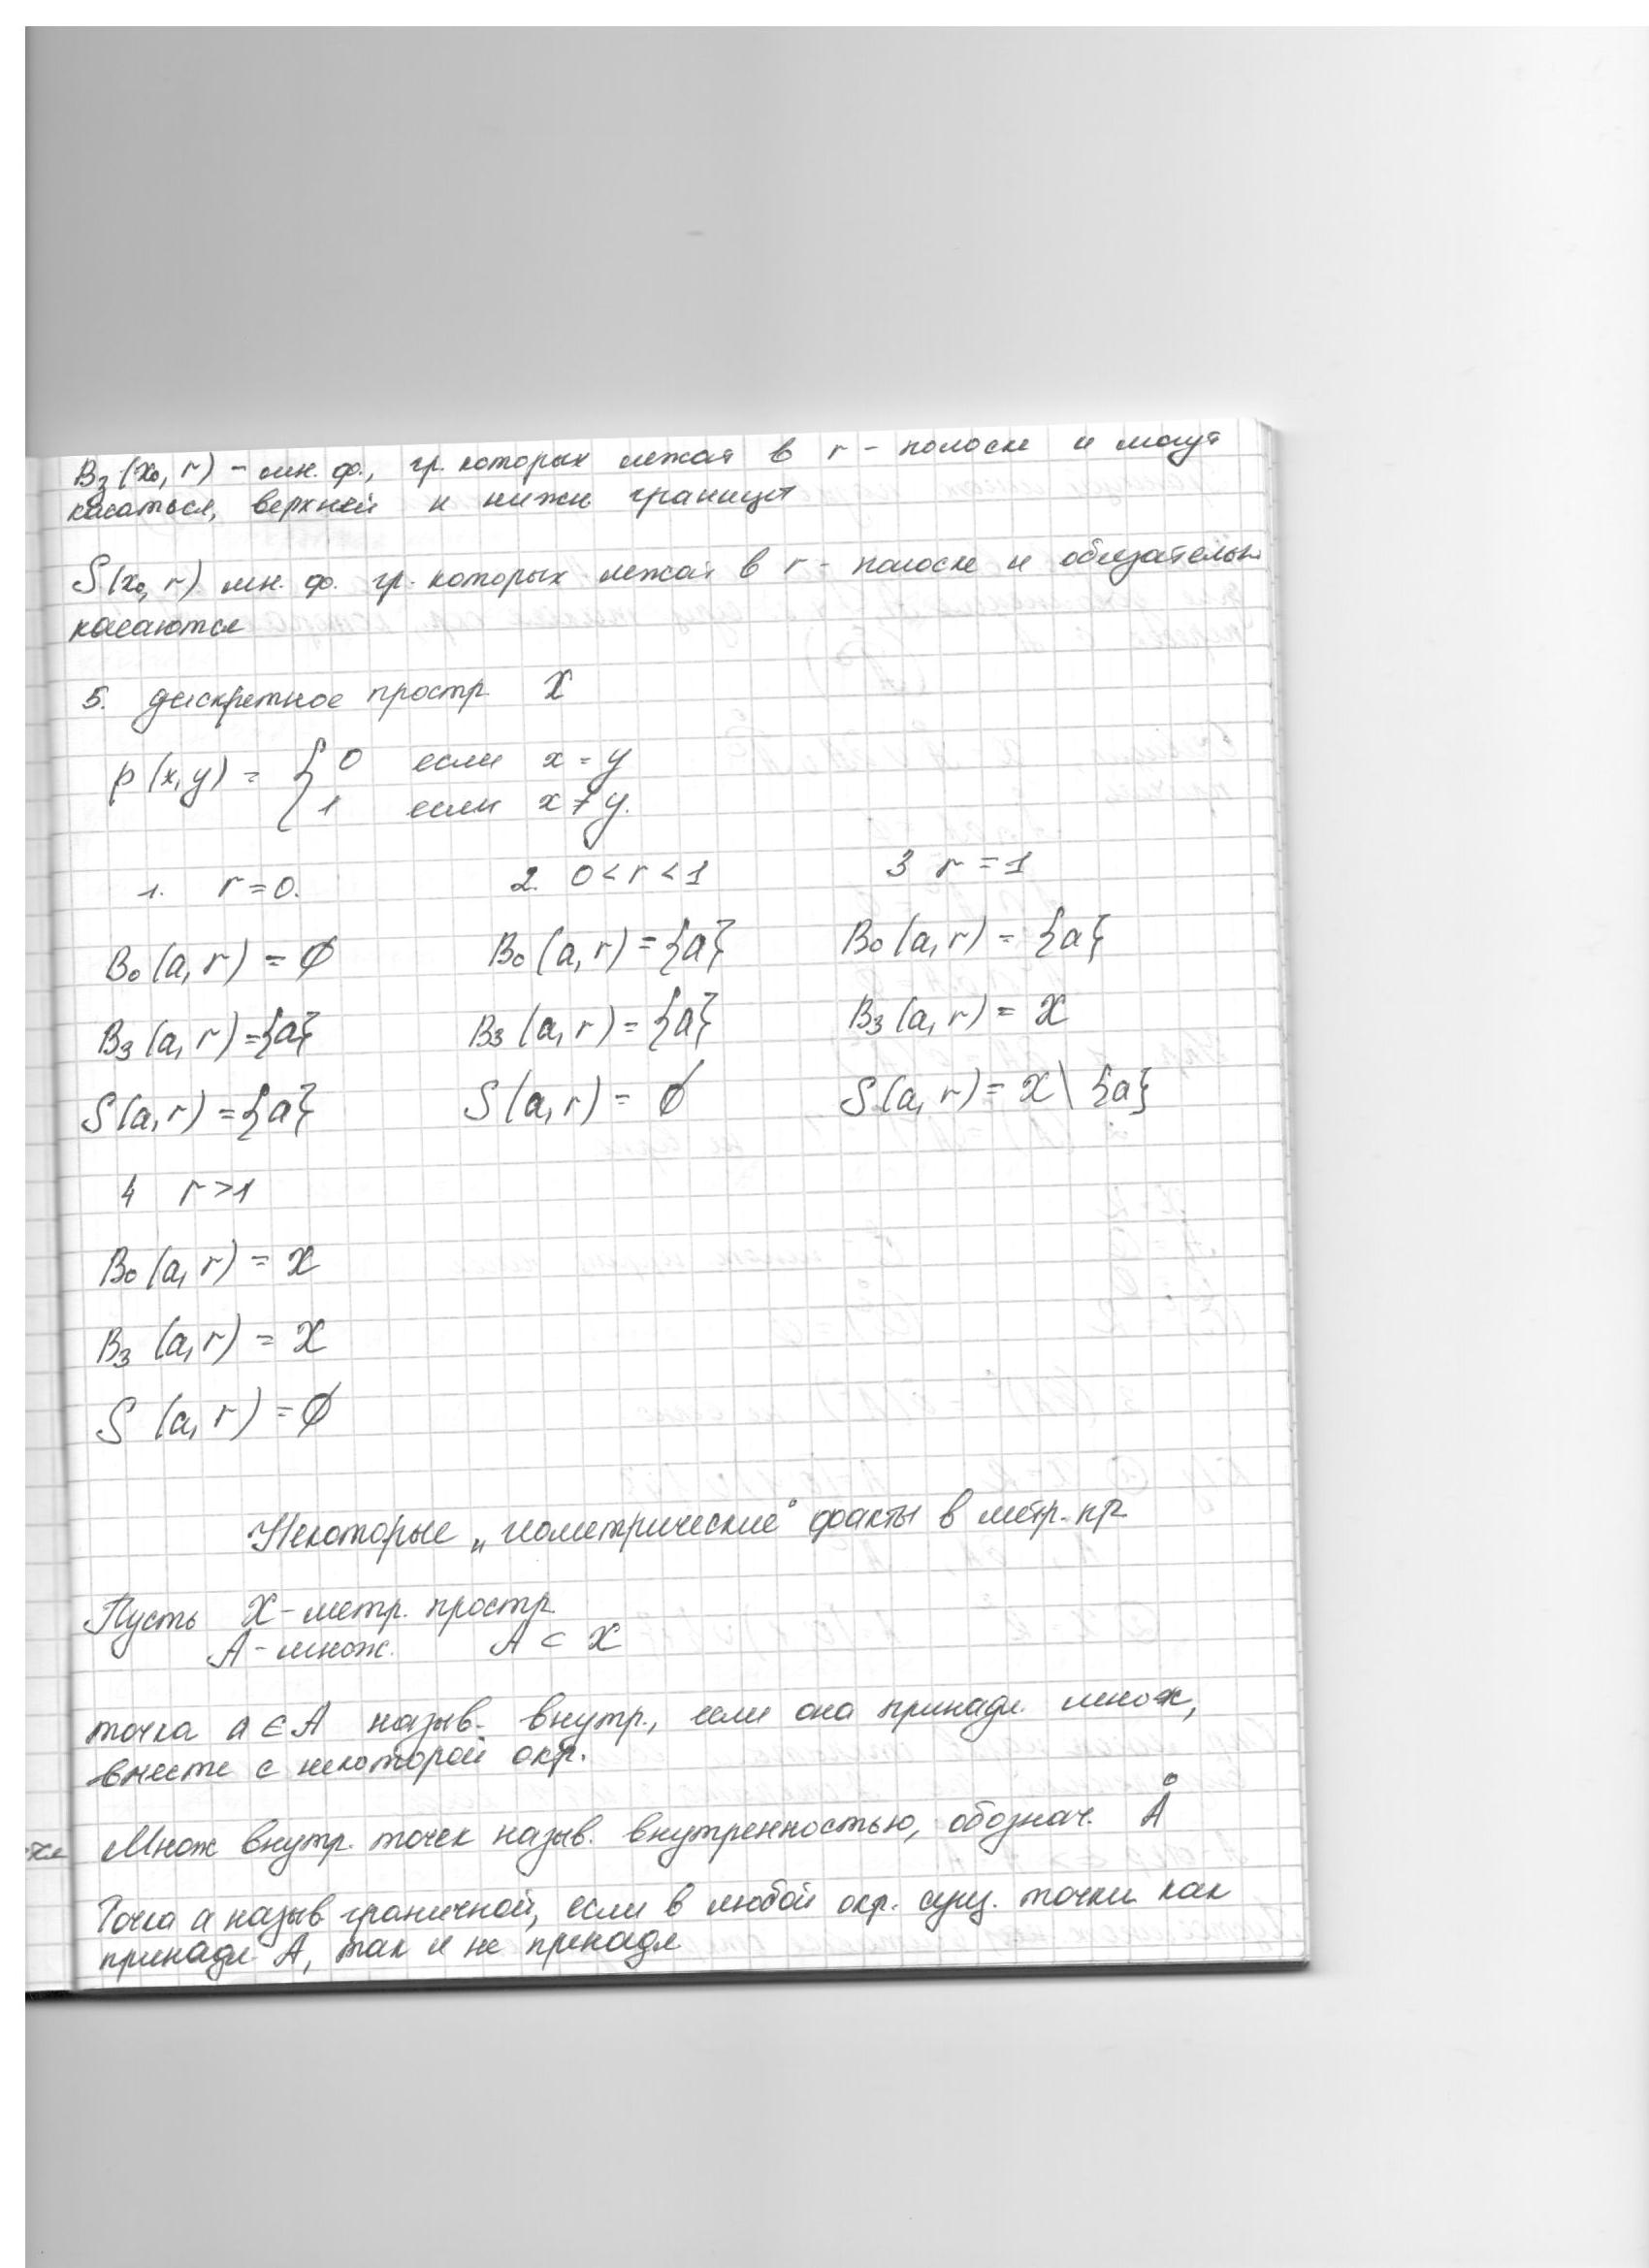 Bз (x₀, r) – мн. ф., гр. которых лежат в r - полоске и могут
касаться, верхней и нижн. границы
S(x₀, r) мн. ф. гр. которых лежат в r - полоске и обязательн
касаются
5. дискретное простр. X
ρ(x, y) = { 0 если x = y
1 если x ≠ y.
1. r = 0. 2. 0 < r < 1 3 r = 1
B₀(a, r) = ∅ B₀(a, r) = {a} B₀(a, r) = {a}
Bз(a, r) = {a} Bз(a, r) = {a} Bз(a, r) = X
S(a, r) = {a} S(a, r) = ∅ S(a, r) = X \ {a}
4 r > 1
B₀(a, r) = X
Bз (a, r) = X
S (a, r) = ∅
Некоторые „геометрические“ факты в метр. пр
Пусть X – метр. простр.
A – множ. A ⊂ X
точка a ∈ A назыв. внутр., если она принадл. множ,
вместе с некоторой окр.
Множ внутр. точек назыв. внутренностью, обознач. Å
Точка a назыв граничной, если в любой окр. сущ. точки как
принадл A, так и не принадл